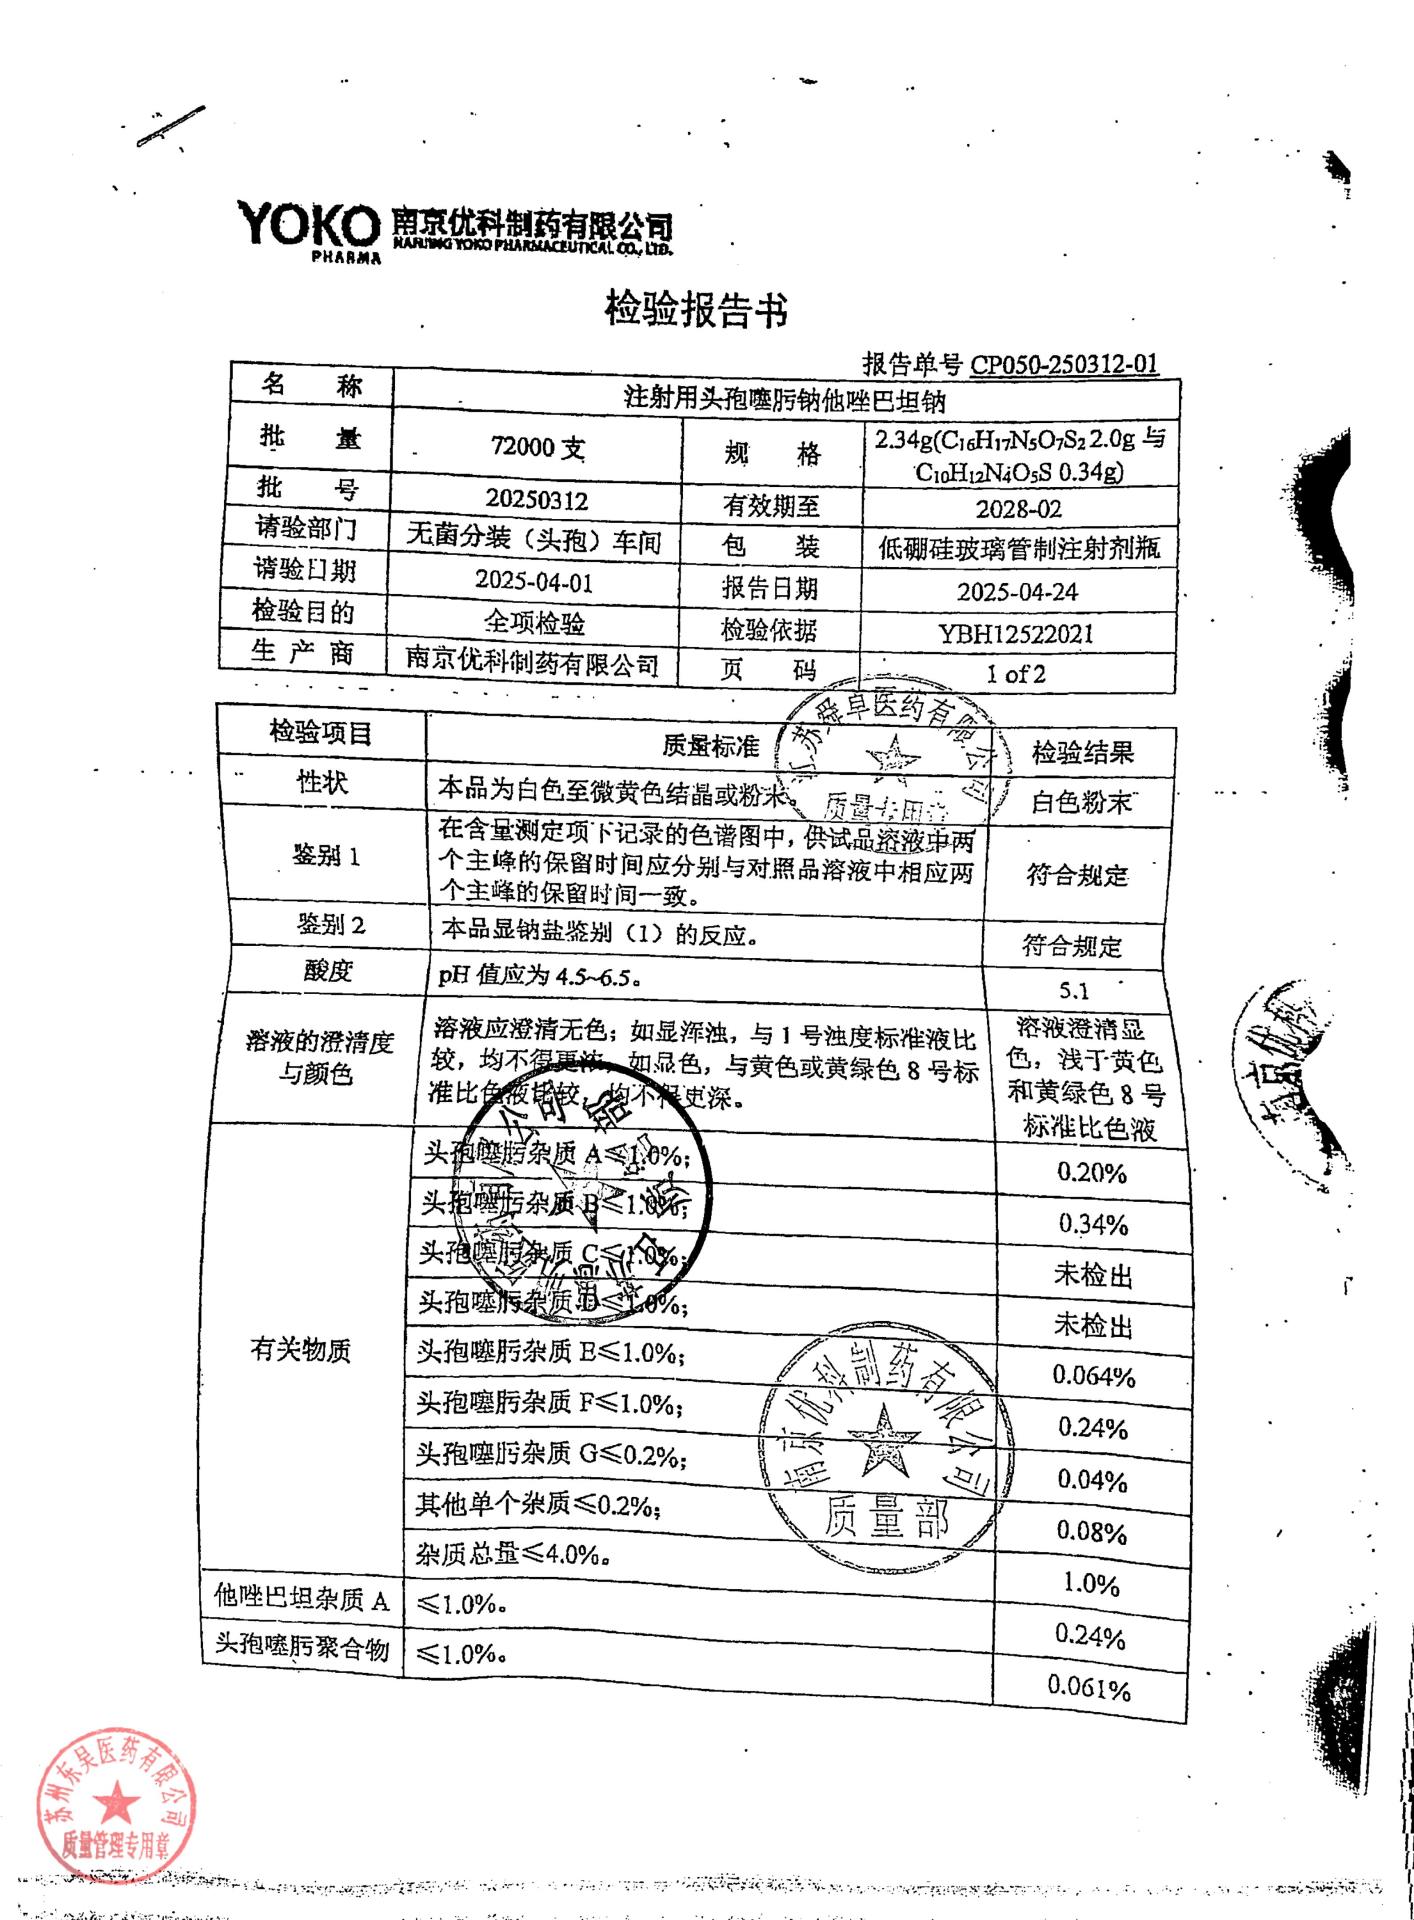 YOKO 南京优科制药有限公司
PHARMA NANJING YOKO PHARMACEUTICAL CO., LTD.
检验报告书
报告单号 CP050-250312-01
名 称 注射用头孢噻肟钠他唑巴坦钠
批 量 72000 支 规 格 2.34g(C16H17N5O7S2 2.0g 与
C10H12N4O5S 0.34g)
批 号 20250312 有效期至 2028-02
请验部门 无菌分装（头孢）车间 包 装 低硼硅玻璃管制注射剂瓶
请验日期 2025-04-01 报告日期 2025-04-24
检验目的 全项检验 检验依据 YBH12522021
生 产 商 南京优科制药有限公司 页 码 1 of 2
检验项目 质量标准 检验结果
性状 本品为白色至微黄色结晶或粉末。 白色粉末
鉴别 1 在含量测定项下记录的色谱图中，供试品溶液中两
个主峰的保留时间应分别与对照品溶液中相应两
个主峰的保留时间一致。 符合规定
鉴别 2 本品显钠盐鉴别（1）的反应。 符合规定
酸度 pH 值应为 4.5~6.5。 5.1
溶液的澄清度
与颜色
溶液应澄清无色；如显浑浊，与 1 号浊度标准液比
较，均不得更浓；如显色，与黄色或黄绿色 8 号标
准比色液比较，均不得更深。
溶液澄清显
色，浅于黄色
和黄绿色 8 号
标准比色液
有关物质
头孢噻肟杂质 A≤1.0%； 0.20%
头孢噻肟杂质 B≤1.0%； 0.34%
头孢噻肟杂质 C≤1.0%； 未检出
头孢噻肟杂质 D≤1.0%； 未检出
头孢噻肟杂质 E≤1.0%； 0.064%
头孢噻肟杂质 F≤1.0%； 0.24%
头孢噻肟杂质 G≤0.2%； 0.04%
其他单个杂质≤0.2%； 0.08%
杂质总量≤4.0%。 1.0%
他唑巴坦杂质 A ≤1.0%。 0.24%
头孢噻肟聚合物 ≤1.0%。 0.061%
江苏舜卓医药有限公司
质量专用章
南京优科制药有限公司
质量部
南京优科
苏州东吴医药有限公司
质量管理专用章